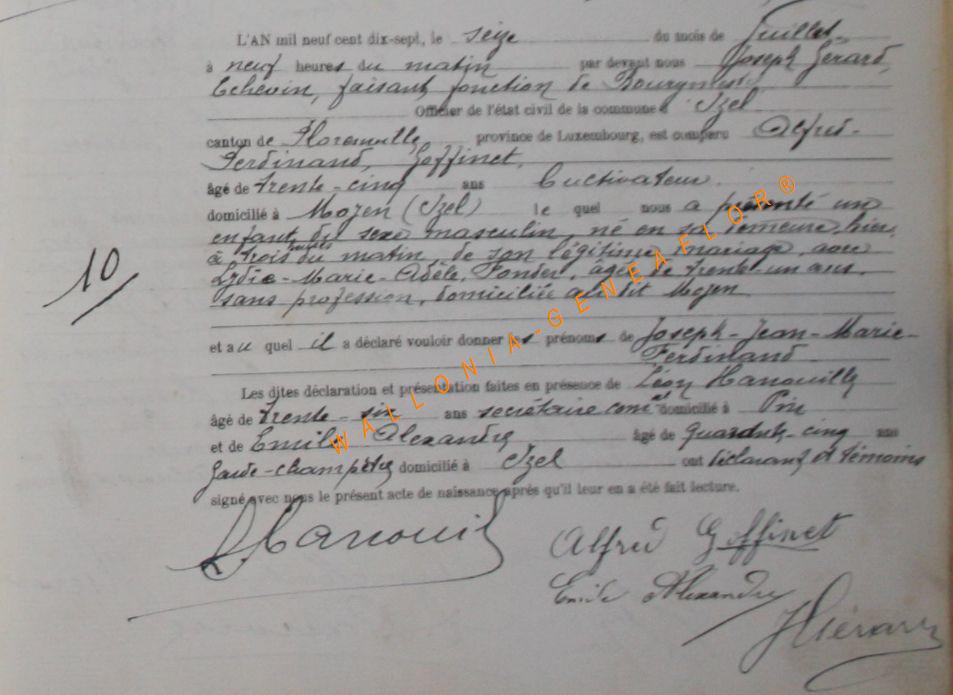 L'AN mil neuf cent dix-sept, le seize du mois de Juillet
à neuf heures du matin par devant nous Joseph Gérard,
Echevin, faisant fonction de Bourgmestre
Officier de l'état civil de la commune d'Izel
canton de Florenville province de Luxembourg, est comparu Alfred-
Ferdinand, Goffinet,
âgé de trente-cinq ans Cultivateur
domicilié à Moyen (Izel) le quel nous a présenté un
enfant du sexe masculin, né en sa demeure, hier,
à trois heures du matin, de son légitime mariage, avec
Lydie-Marie-Adèle, Ponder, âgée de trente-un ans,
sans profession, domiciliée au dit Moyen
10
et au quel il a déclaré vouloir donner les prénoms de Joseph-Jean-Marie-
Ferdinand
Les dites déclaration et présentation faites en présence de Léon Hanouille
âgé de trente-six ans secrétaire comal domicilié à Pin
et de Emile Alexandre âgé de quarante-cinq ans
garde-champêtre domicilié à Izel ont déclarant et témoins
signé avec nous le présent acte de naissance après qu'il leur en a été fait lecture.
LHanouil
Alfred Goffinet
Emile Alexandre
JGérard
WALLONIA-GENEAFLOR®